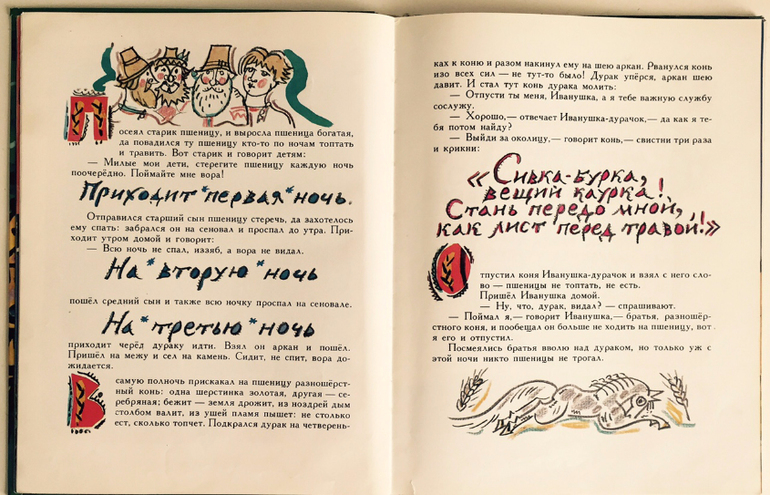 Посеял старик пшеницу, и выросла пшеница богатая,
да повадился ту пшеницу кто-то по ночам топтать
и травить. Вот старик и говорит детям:
— Милые мои дети, стерегите пшеницу каждую ночь
поочерёдно. Поймайте мне вора!
Приходит*первая*ночь.
Отправился старший сын пшеницу стеречь, да захотелось
ему спать: забрался он на сеновал и проспал до утра. При-
ходит утром домой и говорит:
— Всю ночь не спал, иззяб, а вора не видал.
На*вторую*ночь
пошёл средний сын и также всю ночку проспал на сеновале.
На*третью*ночь
приходит черёд дураку идти. Взял он аркан и пошёл.
Пришёл на межу и сел на камень. Сидит, не спит, вора до-
жидается.
В самую полночь прискакал на пшеницу разношёрст-
ный конь: одна шерстинка золотая, другая — се-
ребряная; бежит — земля дрожит, из ноздрей дым
столбом валит, из ушей пламя пышет: не столько
ест, сколько топчет. Подкрался дурак на четверень-
ках к коню и разом накинул ему на шею аркан. Рванулся конь
изо всех сил — не тут-то было! Дурак упёрся, аркан шею
давит. И стал тут конь дурака молить:
— Отпусти ты меня, Иванушка, а я тебе важную службу
сослужу.
— Хорошо,— отвечает Иванушка-дурачок,— да как я те-
бя потом найду?
— Выйди за околицу,— говорит конь,— свистни три раза
и крикни:
«Сивка-бурка,
вещий каурка!
Стань передо мной,
как лист перед травой!»
Отпустил коня Иванушка-дурачок и взял с него сло-
во — пшеницы не топтать, не есть.
Пришёл Иванушка домой.
— Ну, что, дурак, видал? — спрашивают.
— Поймал я,— говорит Иванушка,— братья, разношёр-
стного коня, и пообещал он больше не ходить на пшеницу, вот
я его и отпустил.
Посмеялись братья вволю над дураком, но только уж с
этой ночи никто пшеницы не трогал.